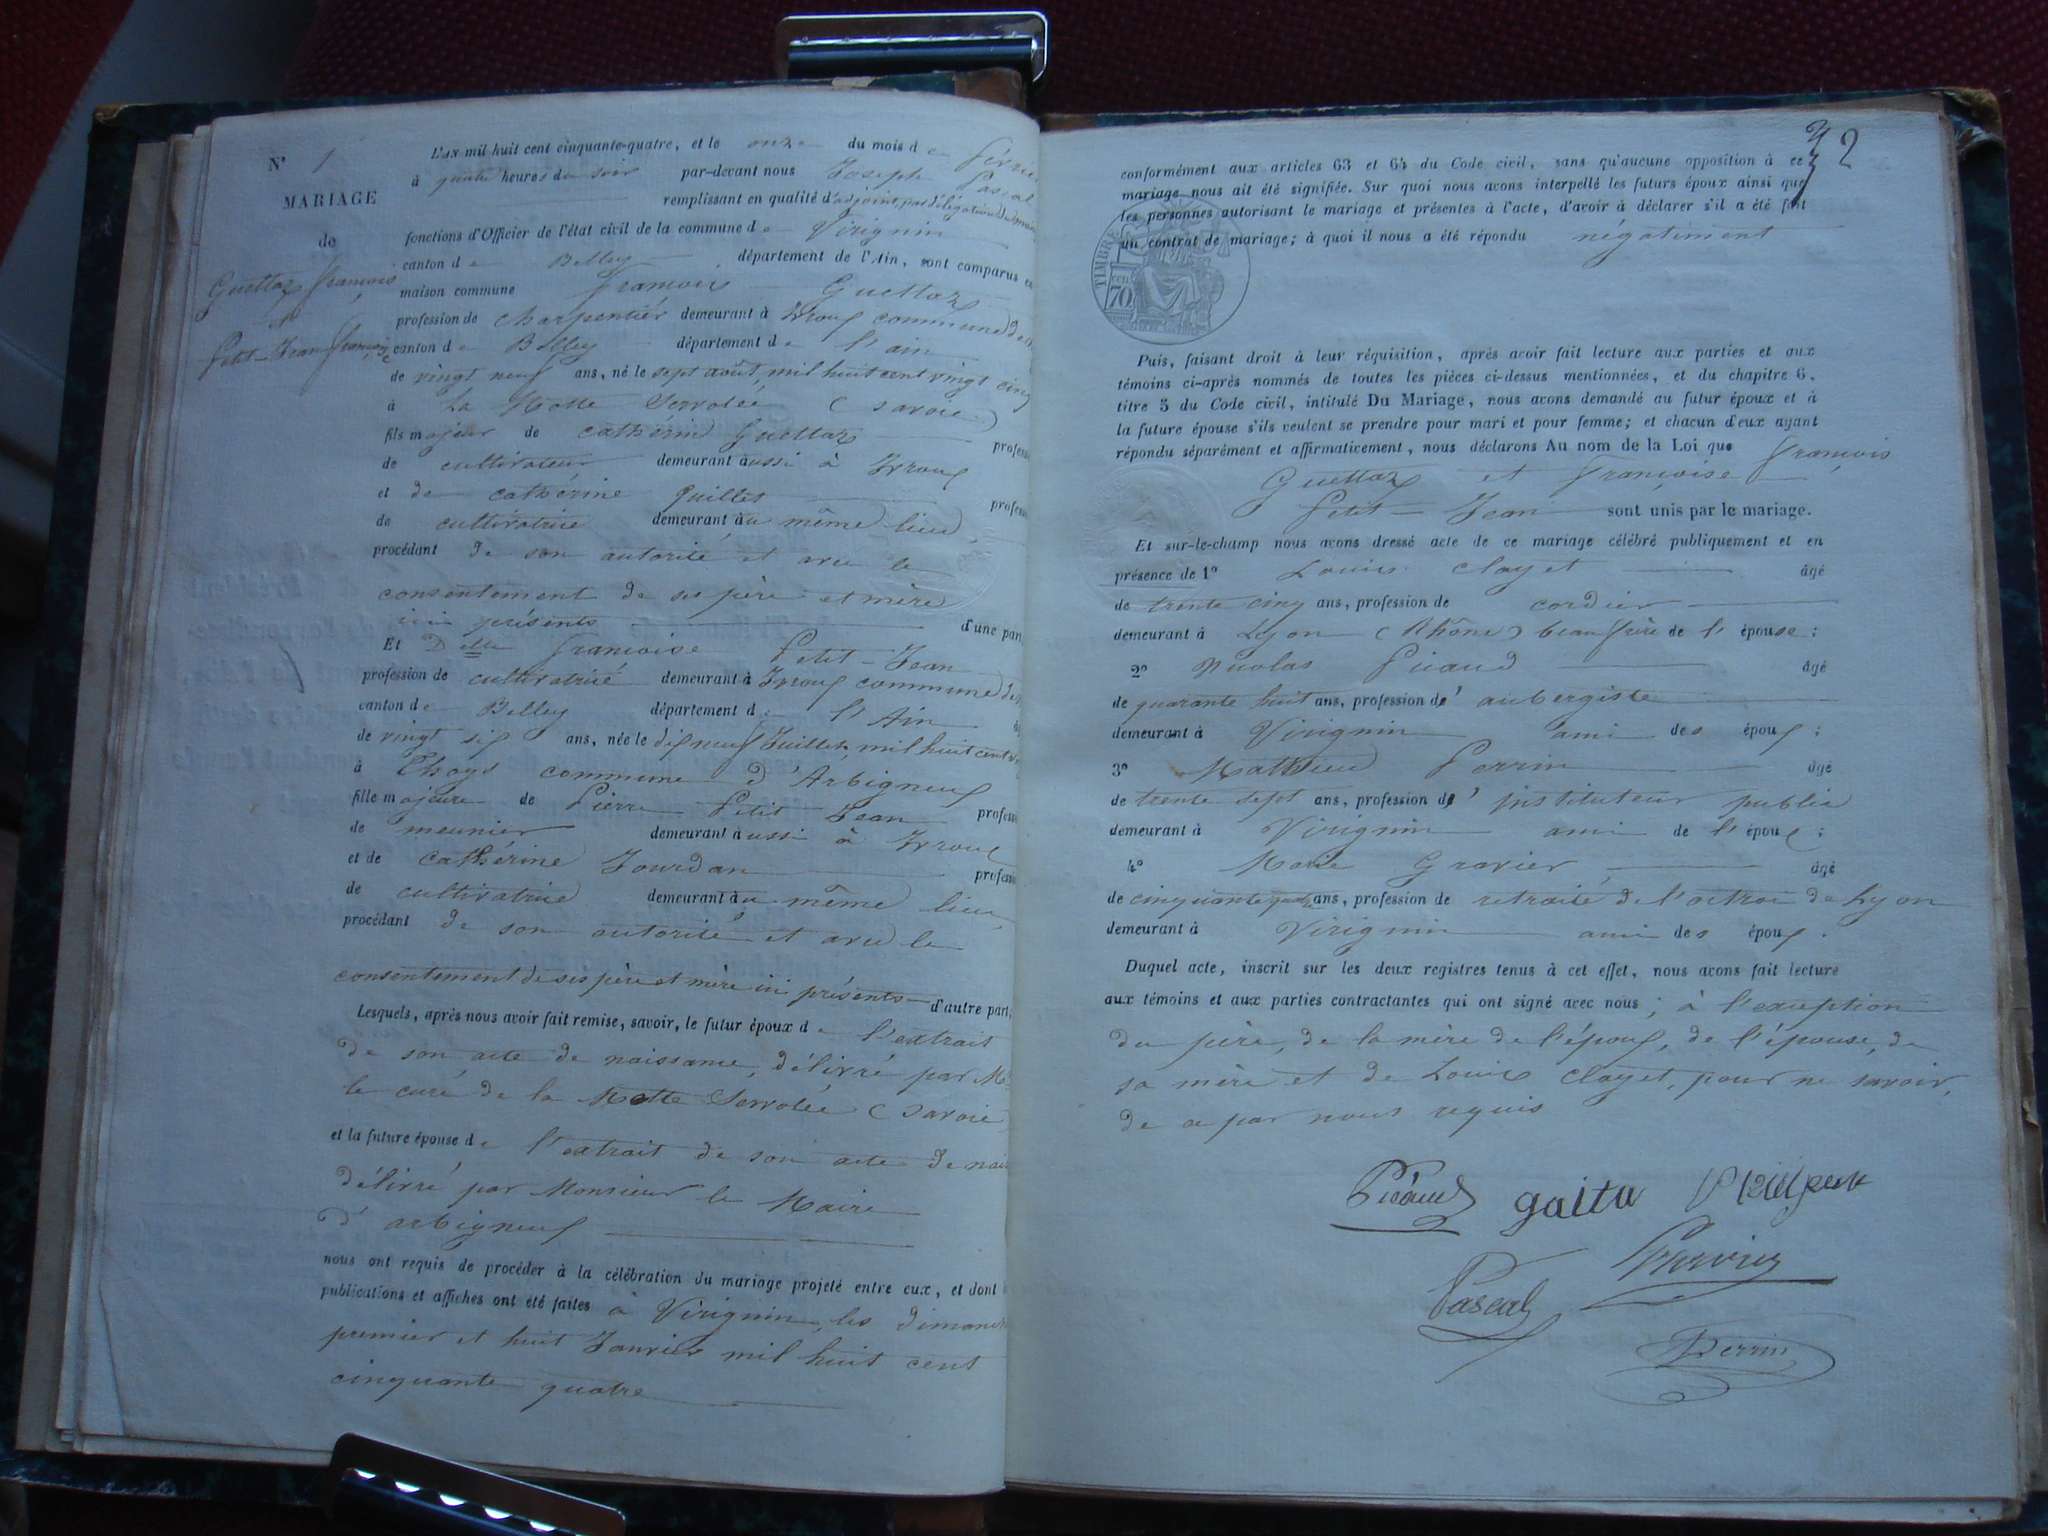 N° 1
MARIAGE
de
Guettaz François
et
Petit-Jean françoise
L'AN mil huit cent cinquante-quatre, et le onze du mois de février
à quatre heures du soir par-devant nous Joseph Pascal
remplissant en qualité d'adjoint, par délégation du maire
fonctions d'Officier de l'état civil de la commune de Virignin
canton de Belley département de l'Ain, sont comparus en
maison commune François Guettaz
profession de charpentier demeurant à commune de
canton de Belley département de l'ain
de vingt neuf ans, né le sept août, mil huit cent vingt cinq
à La Motte Servolée (Savoie)
fils majeur de Catherin Guettaz profess
de cultivateur demeurant aussi à
et de cathérine Guillet profess
de cultivatrice demeurant au même lieu,
procédant de son autorité et avec le
consentement de ses père et mère
ici présents d'une part
Et Delle Françoise Petit-Jean
profession de cultivatrice demeurant à commune de
canton de Belley département de l'Ain
de vingt six ans, née le dix neuf Juillet, mil huit cent
à Thoys commune d'Arbigneux
fille majeure de Pierre Petit Jean profess
de meunier demeurant aussi à
et de cathérine Jourdan profess
de cultivatrice demeurant au même lieu,
procédant de son autorité et avec le
consentement de ses père et mère ici présents d'autre part;
Lesquels, après nous avoir fait remise, savoir, le futur époux de l'extrait
de son acte de naissance, délivré par Mr
le curé de la Motte Servolée (Savoie
et la future épouse de l'extrait de son acte de nais
délivré par Monsieur le Maire
d'arbigneux
nous ont requis de procéder à la célébration du mariage projeté entre eux, et dont
publications et affiches ont été faites à Virignin, les dimanch
premier et huit Janvier mil huit cent
cinquante quatre
32
conformément aux articles 63 et 64 du Code civil, sans qu'aucune opposition à ce
mariage nous ait été signifiée. Sur quoi nous avons interpellé les futurs époux ainsi que
les personnes autorisant le mariage et présentes à l'acte, d'avoir à déclarer s'il a été fait
un contrat de mariage; à quoi il nous a été répondu négativement
TIMBRE
70
Puis, faisant droit à leur réquisition, après avoir fait lecture aux parties et aux
témoins ci-après nommés de toutes les pièces ci-dessus mentionnées, et du chapitre 6,
titre 5 du Code civil, intitulé Du Mariage, nous avons demandé au futur époux et à
la future épouse s'ils veulent se prendre pour mari et pour femme; et chacun d'eux ayant
répondu séparément et affirmativement, nous déclarons Au nom de la Loi que François
Guettaz et Françoise
Petit-Jean sont unis par le mariage.
Et sur-le-champ nous avons dressé acte de ce mariage célébré publiquement et en
présence de 1° Louis Clayet âgé
de trente cinq ans, profession de cordier
demeurant à Lyon (Rhône) beau frère de l'épouse;
2° Nicolas Picaud âgé
de quarante huit ans, profession d'aubergiste
demeurant à Virignin ami des époux;
3° Mathieu Perrin âgé
de trente sept ans, profession d'instituteur public
demeurant à Virignin ami de l'époux;
4° Marie Gravier âgé
de cinquante quatre ans, profession de retraité de l'octroi de Lyon
demeurant à Virignin ami des époux.
Duquel acte, inscrit sur les deux registres tenus à cet effet, nous avons fait lecture
aux témoins et aux parties contractantes qui ont signé avec nous; à l'exception
du père, de la mère de l'époux, de l'épouse, de
sa mère et de Louis Clayet, pour ne savoir,
de ce par nous requis
Picaud gaita
Pascal
Perrin